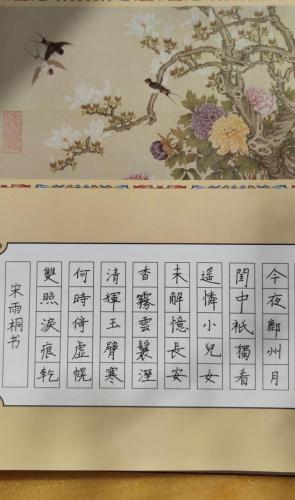 今夜鄜州月
閨中祇獨看
遥憐小兒女
未解憶長安
香霧雲鬟溼
清輝玉臂寒
何時倚虚幌
雙照淚痕乾
宋雨桐书